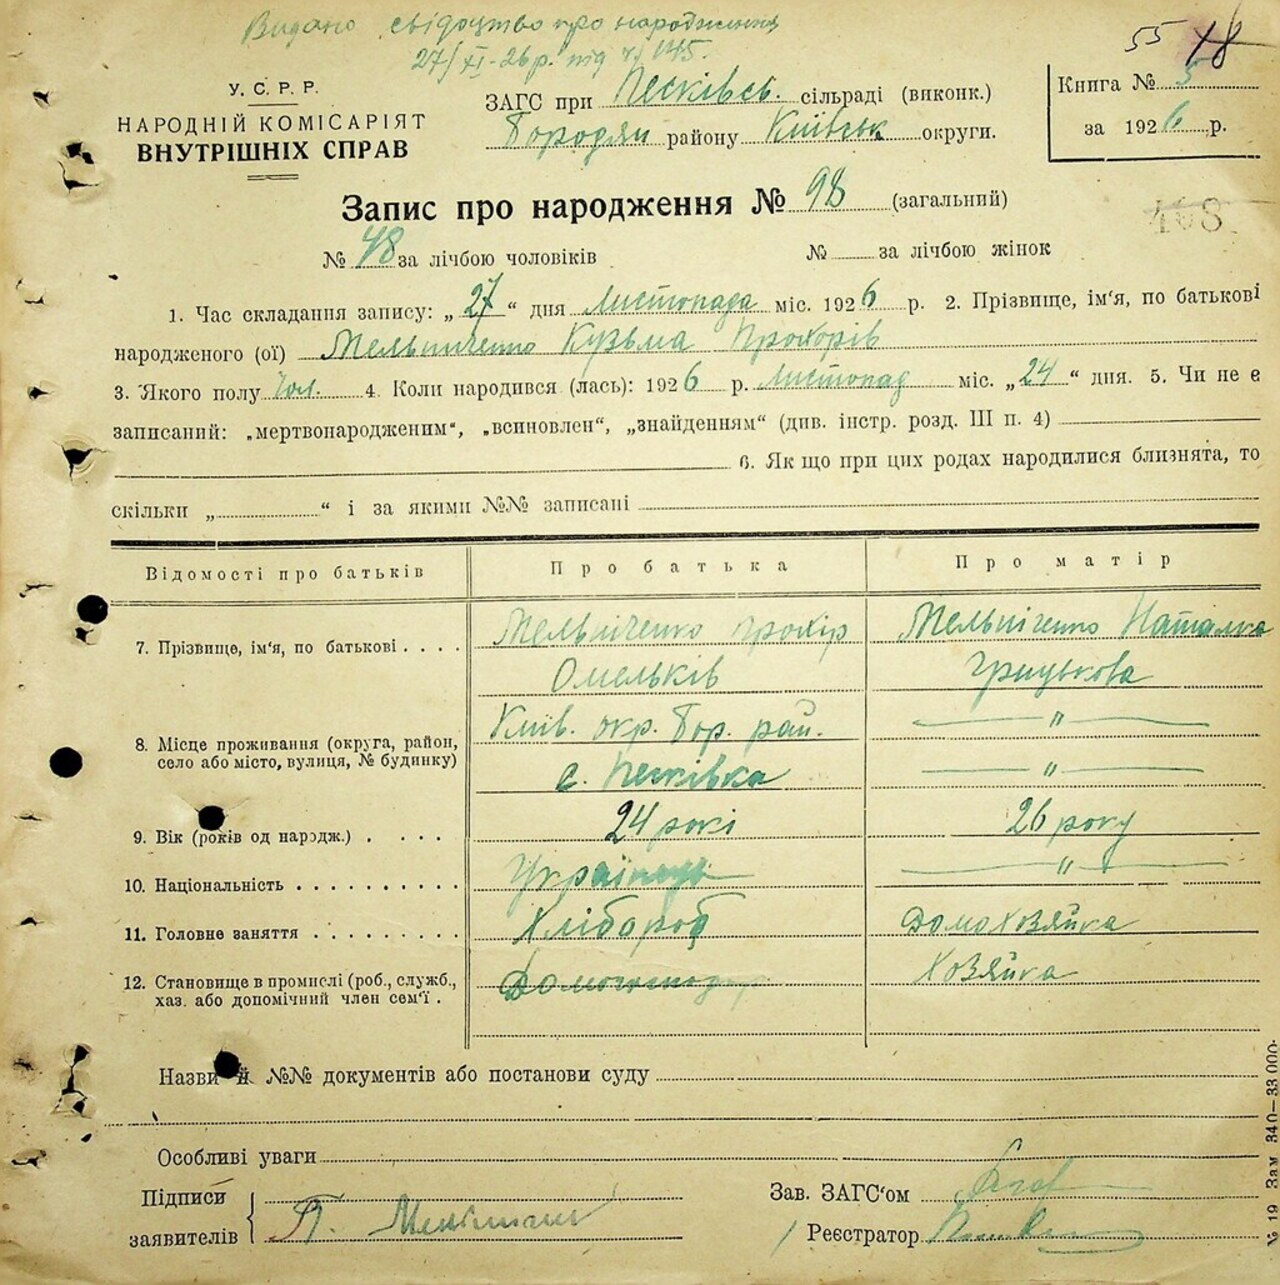 Видано свідоцтво про народження
27/XI-26р. під ч.
55 48
У. С. Р. Р.
НАРОДНІЙ КОМІСАРІЯТ
ВНУТРІШНІХ СПРАВ
ЗАГС при Песківсь. сільраді (виконк.)
Бородян району Київськ округи.
Книга № 5
за 1926 р.
Запис про народження № 98 (загальний)
408
№ 48 за лічбою чоловіків № за лічбою жінок
1. Час складання запису: „27“ дня Листопада міс. 1926 р. 2. Прізвище, ім'я, по батькові
народженого (ої) Мельниченко Кузьма Прохорів
3. Якого полу чол. 4. Коли народився (лась): 1926 р. Листопад міс. „24“ дня. 5. Чи не є
записаний: „мертвонародженим“, „всиновлен“, „знайденням“ (див. інстр. розд. III п. 4)
6. Як що при цих родах народилися близнята, то
скільки „ “ і за якими №№ записані
Відомості про батьків Про батька Про матір
7. Прізвище, ім'я, по батькові . . . . Мельниченко Прохір Мельніченко Наталка
Омельків Грицькова
8. Місце проживання (округа, район, село або місто, вулиця, № будинку) Київ. окр. Бор. рай. — " —
с. Песківка — " —
9. Вік (років од народж.) . . . . 24 рокі 26 року
10. Національність . . . . . . . . . . Українець — " —
11. Головне заняття . . . . . . . . . Хлібороб Домохозяйка
12. Становище в промислі (роб., служб., хаз. або допомічний член сем'ї . Домогосподар Хозяйка
Назви й №№ документів або постанови суду
Особливі уваги
Підписи
заявителів П.
Зав. ЗАГС'ом
Реєстратор
№ 19 Зам 340—33 000.